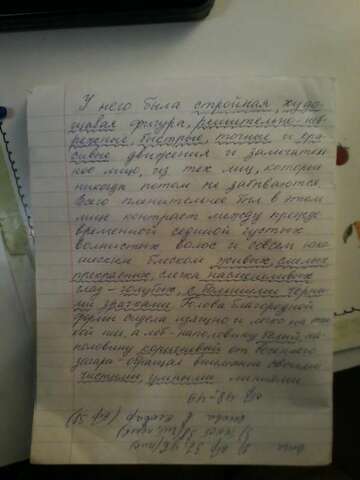 У него была стройная, худо-
щавая фигура, решительно-неб-
режные, быстрые, точные и кра-
сивые движения и замечатель-
ное лицо, из тех лиц, которые
никогда потом не забываются.
Всего пленительнее был в этом
лице контраст между прежде-
временной сединой густых
волнистых волос и совсем юно-
шеским блеском живых, смелых,
прекрасных, слегка насмешливых
глаз - голубых, с большими черны-
ми зрачками. Голова благородной
формы сидела изящно и легко на
шеи, а лоб - наполовину белый, на-
половину коричневый от весеннего
загара - обращал внимание своими
чистыми, умными линиями